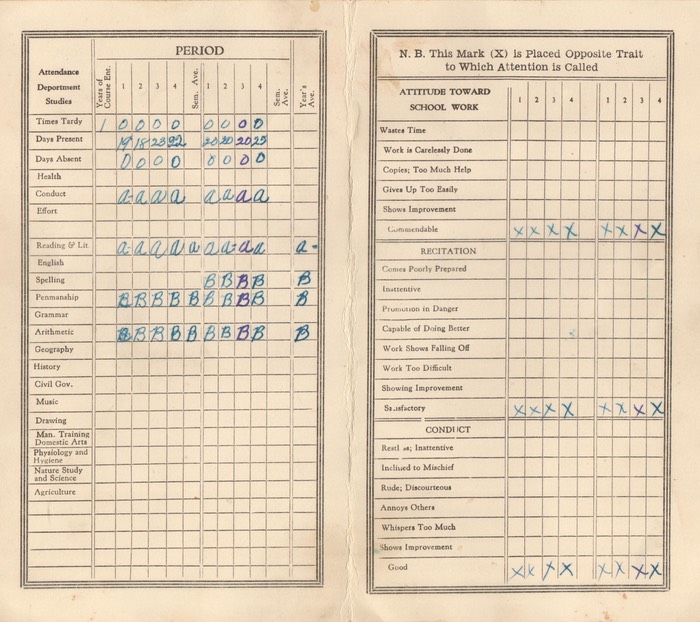 PERIOD
Attendance
Department
Studies
Years of Course Ent.
1 2 3 4 Sem. Ave. 1 2 3 4 Sem. Ave. Year's Ave.
Times Tardy 1 0 0 0 0 0 0 0 0
Days Present 19 18 23 22 20 20 20 25
Days Absent 0 0 0 0 0 0 0 0
Health
Conduct a- a a a a a a a
Effort
Reading & Lit. a- a a a a a a- a a a-
English
Spelling B B B B B
Penmanship B B B B B B B B B B
Grammar
Arithmetic B B B B B B B B B B
Geography
History
Civil Gov.
Music
Drawing
Man. Training
Domestic Arts
Physiology and
Hygiene
Nature Study
and Science
Agriculture
N. B. This Mark (X) is Placed Opposite Trait
to Which Attention is Called
ATTITUDE TOWARD
SCHOOL WORK
1 2 3 4 1 2 3 4
Wastes Time
Work is Carelessly Done
Copies; Too Much Help
Gives Up Too Easily
Shows Improvement
Commendable X X X X X X X X
RECITATION
Comes Poorly Prepared
Inattentive
Promotion in Danger
Capable of Doing Better
Work Shows Falling Off
Work Too Difficult
Showing Improvement
Satisfactory X X X X X X X X
CONDUCT
Restless; Inattentive
Inclined to Mischief
Rude; Discourteous
Annoys Others
Whispers Too Much
Shows Improvement
Good X X X X X X X X